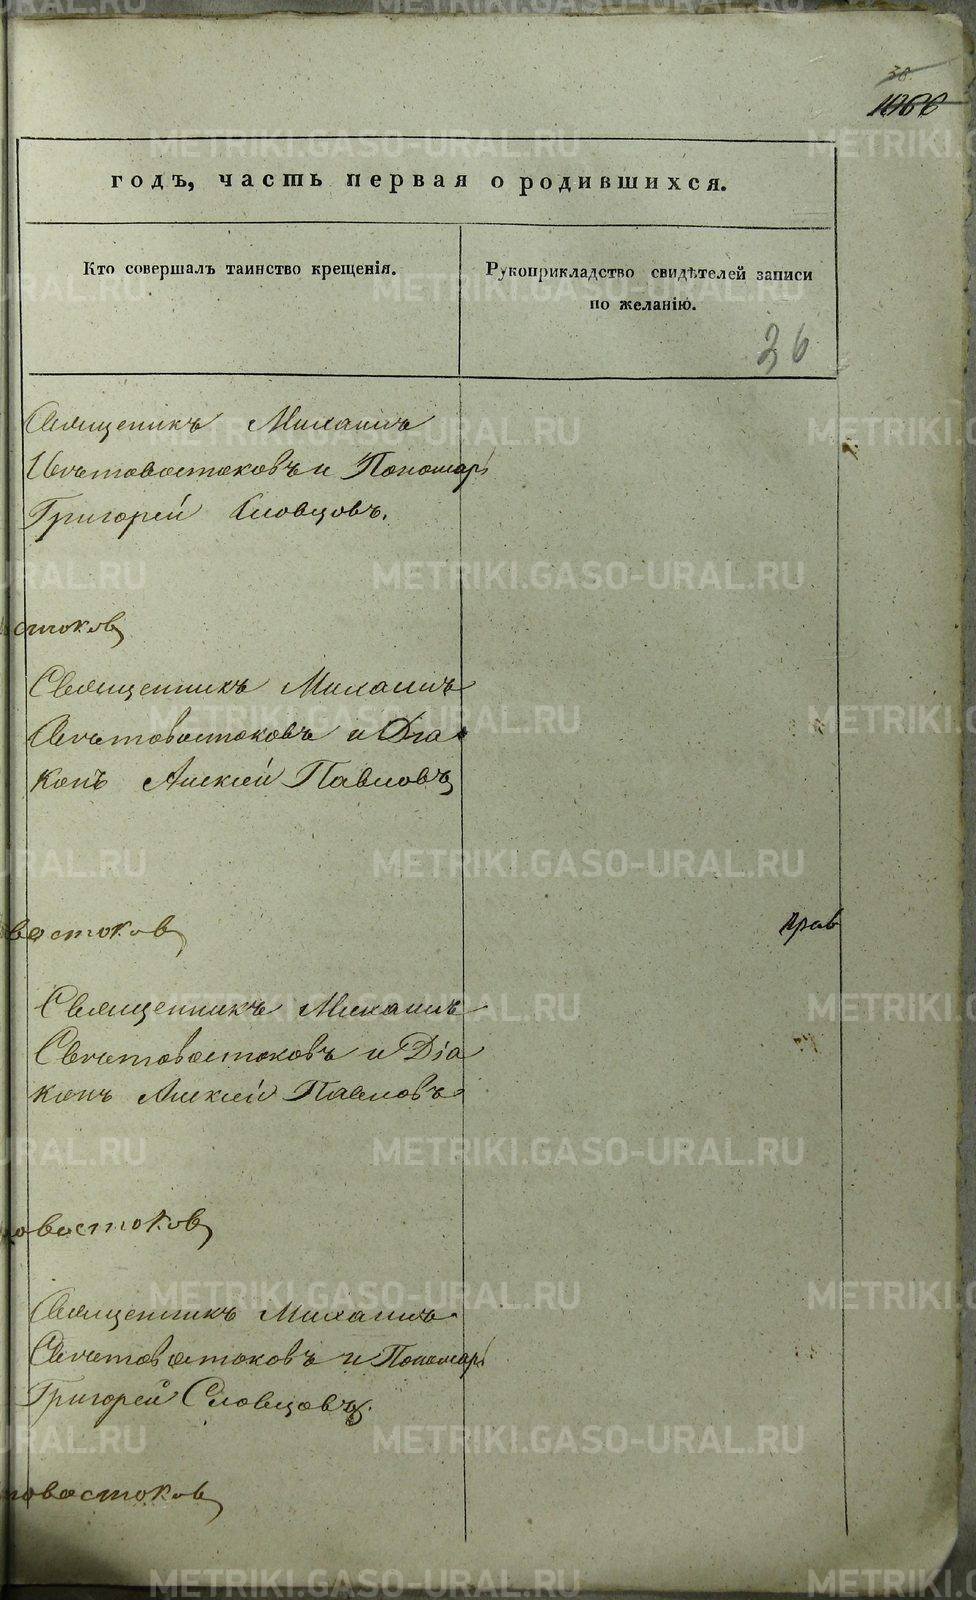 38.
1066
годъ, часть первая о родившихся.
Кто совершалъ таинство крещенія.
Рукоприкладство свидѣтелей записи
по желанію.
36
Священикъ Михаилъ
Свѣтовостоковъ и Пономарь
Григорей Словцовъ.
остоковъ
Священникъ Михаилъ
Свѣтовостоковъ и Діа
конъ Алексѣй Павловъ
востоковъ
прав
Священникъ Михаилъ
Свѣтовостоковъ и Діа
конъ Алексѣй Павловъ
овостоковъ
Священникъ Михаилъ
Свѣтовостоковъ и Пономарь
Григорей Словцовъ.
товостоковъ
METRIKI.GASO-URAL.RU